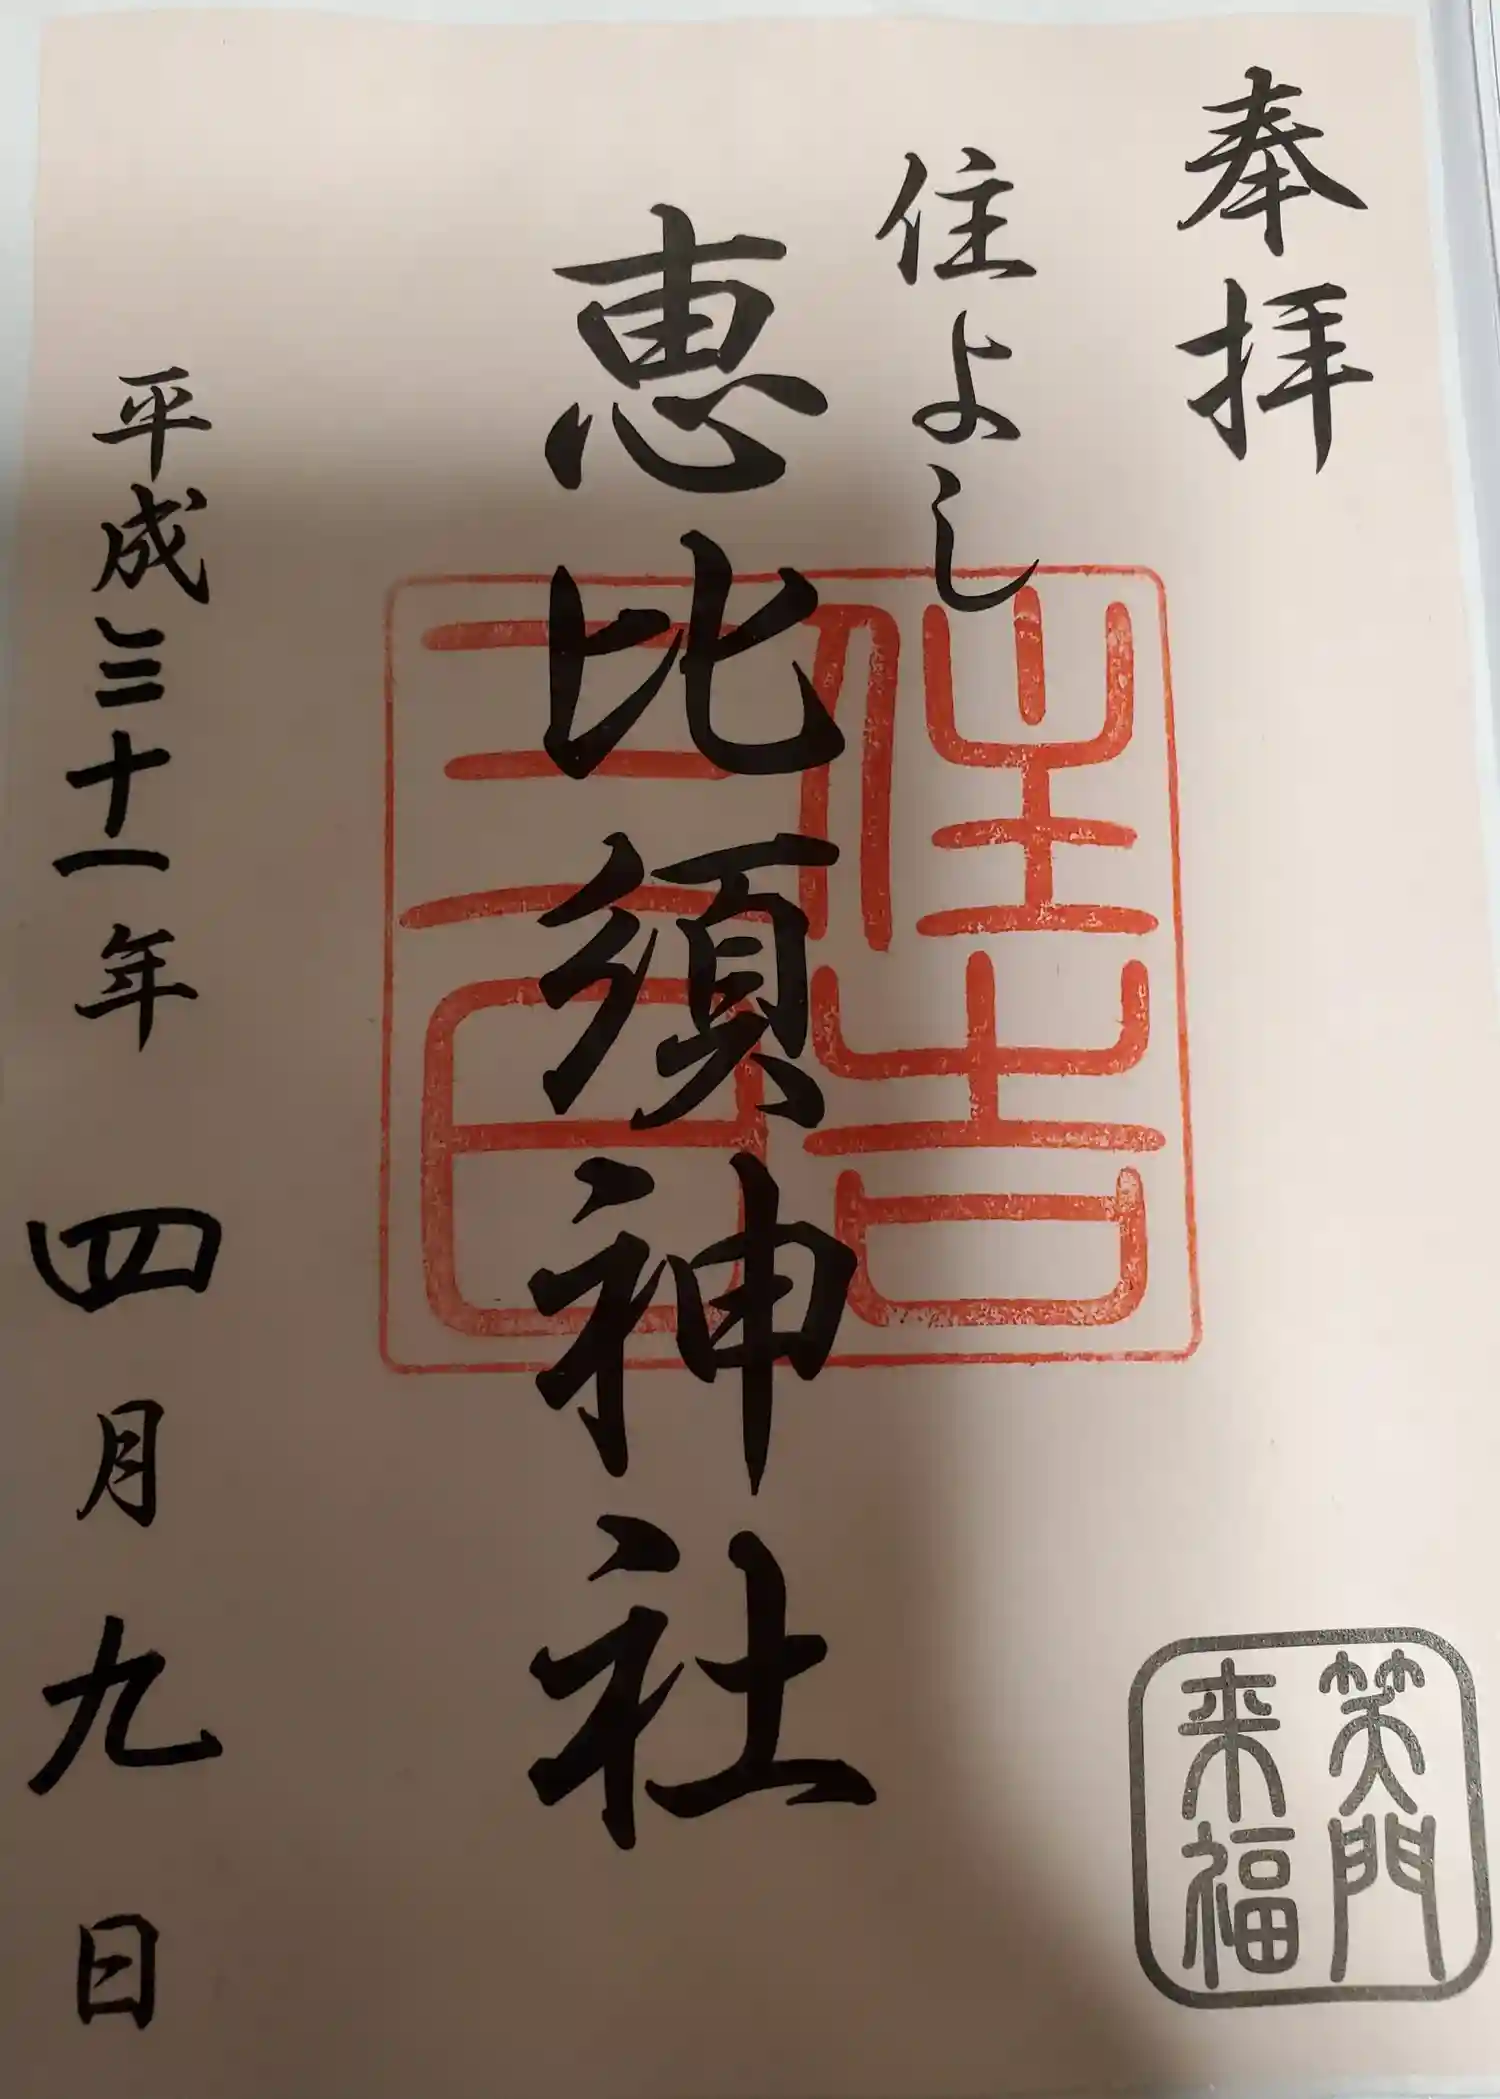 奉拝
住よし
恵比須神社
住吉
三宮
平成三十一年 四月九日
笑門
来福